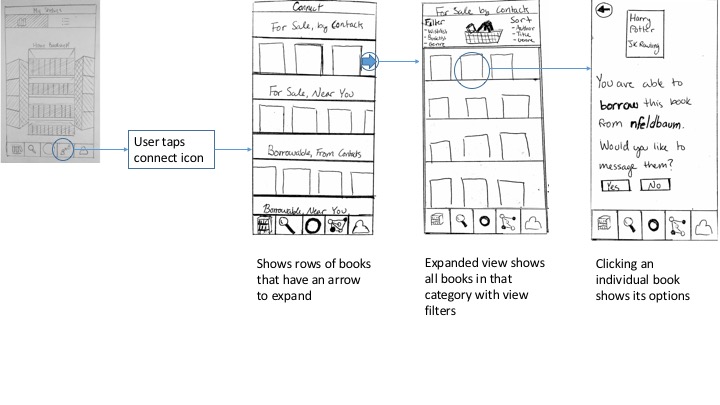 My Library
Your Bookshelf
User taps
connect icon
Connect
For Sale, by Contacts
For Sale, Near You
Borrowable, From Contacts
Borrowable, Near You
Shows rows of books
that have an arrow
to expand
For Sale by Contacts
Filter
- Wishlist
- Booklist
- Genre
Sort
- Author
- Title
- Genre
Expanded view shows
all books in that
category with view
filters
Harry
Potter
JK Rowling
You are able to
borrow this book
from nfeldbaum.
Would you like to
message them?
Yes No
Clicking an
individual book
shows its options